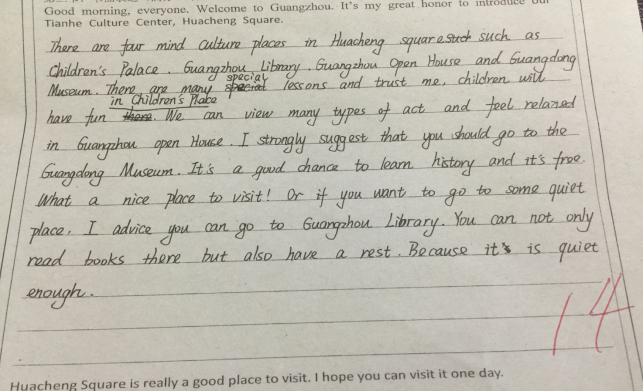 Good morning, everyone. Welcome to Guangzhou. It's my great honor to introduce our
Tianhe Culture Center, Huacheng Square.
There are four mind culture places in Huacheng square such as
Children's Palace. Guangzhou Library. Guangzhou Open House and Guangdong
special
Museum. There are many special lessons and trust me, children will
in Children's Plake
have fun there. We can view many types of act and feel relaxed
in Guangzhou open House. I strongly suggest that you should go to the
Guangdong Museum. It's a good chance to learn history and it's free.
What a nice place to visit! Or if you want to go to some quiet
place, I advice you can go to Guangzhou Library. You can not only
read books there but also have a rest. Because it's is quiet
enough.
14
Huacheng Square is really a good place to visit. I hope you can visit it one day.